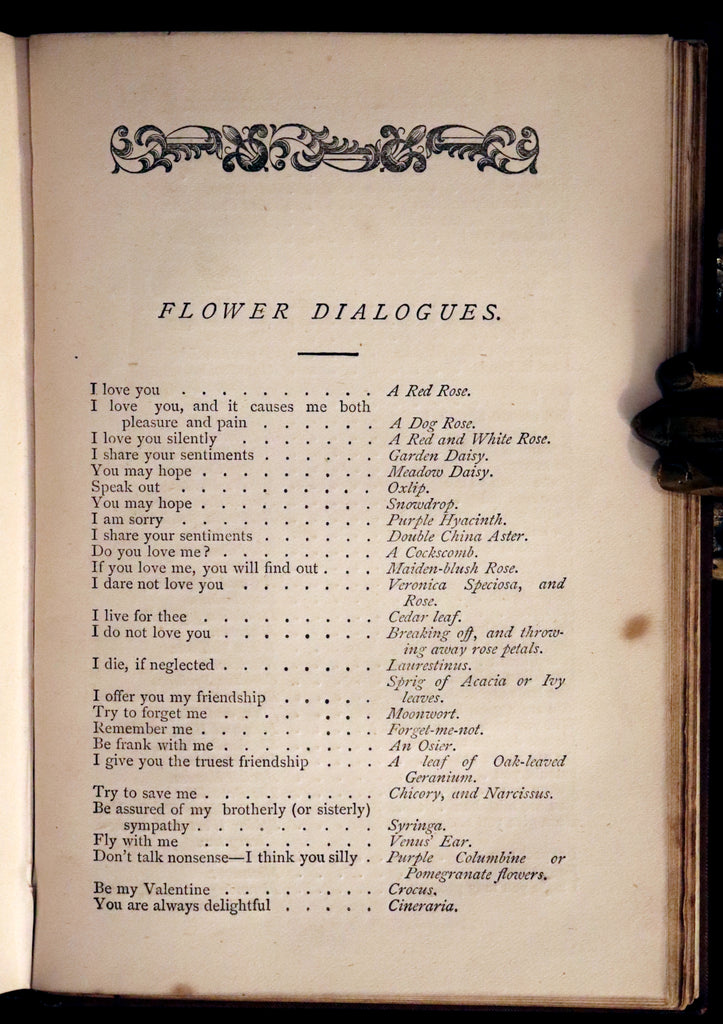 FLOWER DIALOGUES.
I love you . . . . . . . . . . A Red Rose.
I love you, and it causes me both
pleasure and pain . . . . . . A Dog Rose.
I love you silently . . . . . . . A Red and White Rose.
I share your sentiments . . . . . . Garden Daisy.
You may hope . . . . . . . . . Meadow Daisy.
Speak out . . . . . . . . . . Oxlip.
You may hope . . . . . . . . . Snowdrop.
I am sorry . . . . . . . . . . Purple Hyacinth.
I share your sentiments . . . . . . Double China Aster.
Do you love me? . . . . . . . . A Cockscomb.
If you love me, you will find out . . . Maiden-blush Rose.
I dare not love you . . . . . . . Veronica Speciosa, and
Rose.
I live for thee . . . . . . . . . Cedar leaf.
I do not love you . . . . . . . . Breaking off, and throw-
ing away rose petals.
I die, if neglected . . . . . . . . Laurestinus.
Sprig of Acacia or Ivy
I offer you my friendship . . . . . leaves.
Try to forget me . . . . . . . . Moonwort.
Remember me . . . . . . . . . Forget-me-not.
Be frank with me . . . . . . . . An Osier.
I give you the truest friendship . . . A leaf of Oak-leaved
Geranium.
Try to save me . . . . . . . . . Chicory, and Narcissus.
Be assured of my brotherly (or sisterly)
sympathy . . . . . . . . . Syringa.
Fly with me . . . . . . . . . Venus' Ear.
Don't talk nonsense—I think you silly . Purple Columbine or
Pomegranate flowers.
Be my Valentine . . . . . . . . Crocus.
You are always delightful . . . . . Cineraria.